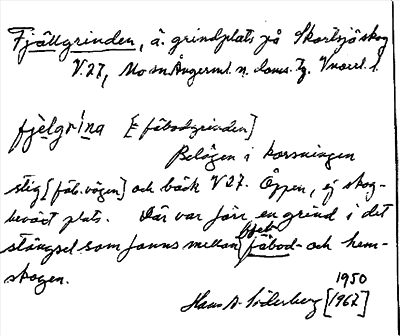 Fjällgrinden, ä. grindplats på Skortsjö skog
V.27, Mo sn Ångerml. n. doms. Tg. V norrl. l.
fjèlgrína [= fäbodgrinden]
Belägen i korsningen
stig [fäb.vägen] och bäck V27. Öppen, ej skog-
beväxt plats. Där var förr en grind i det
stängsel som fanns mellan fäbod- och hem-
skogen.
1950
Hans A. Söderberg [1967]